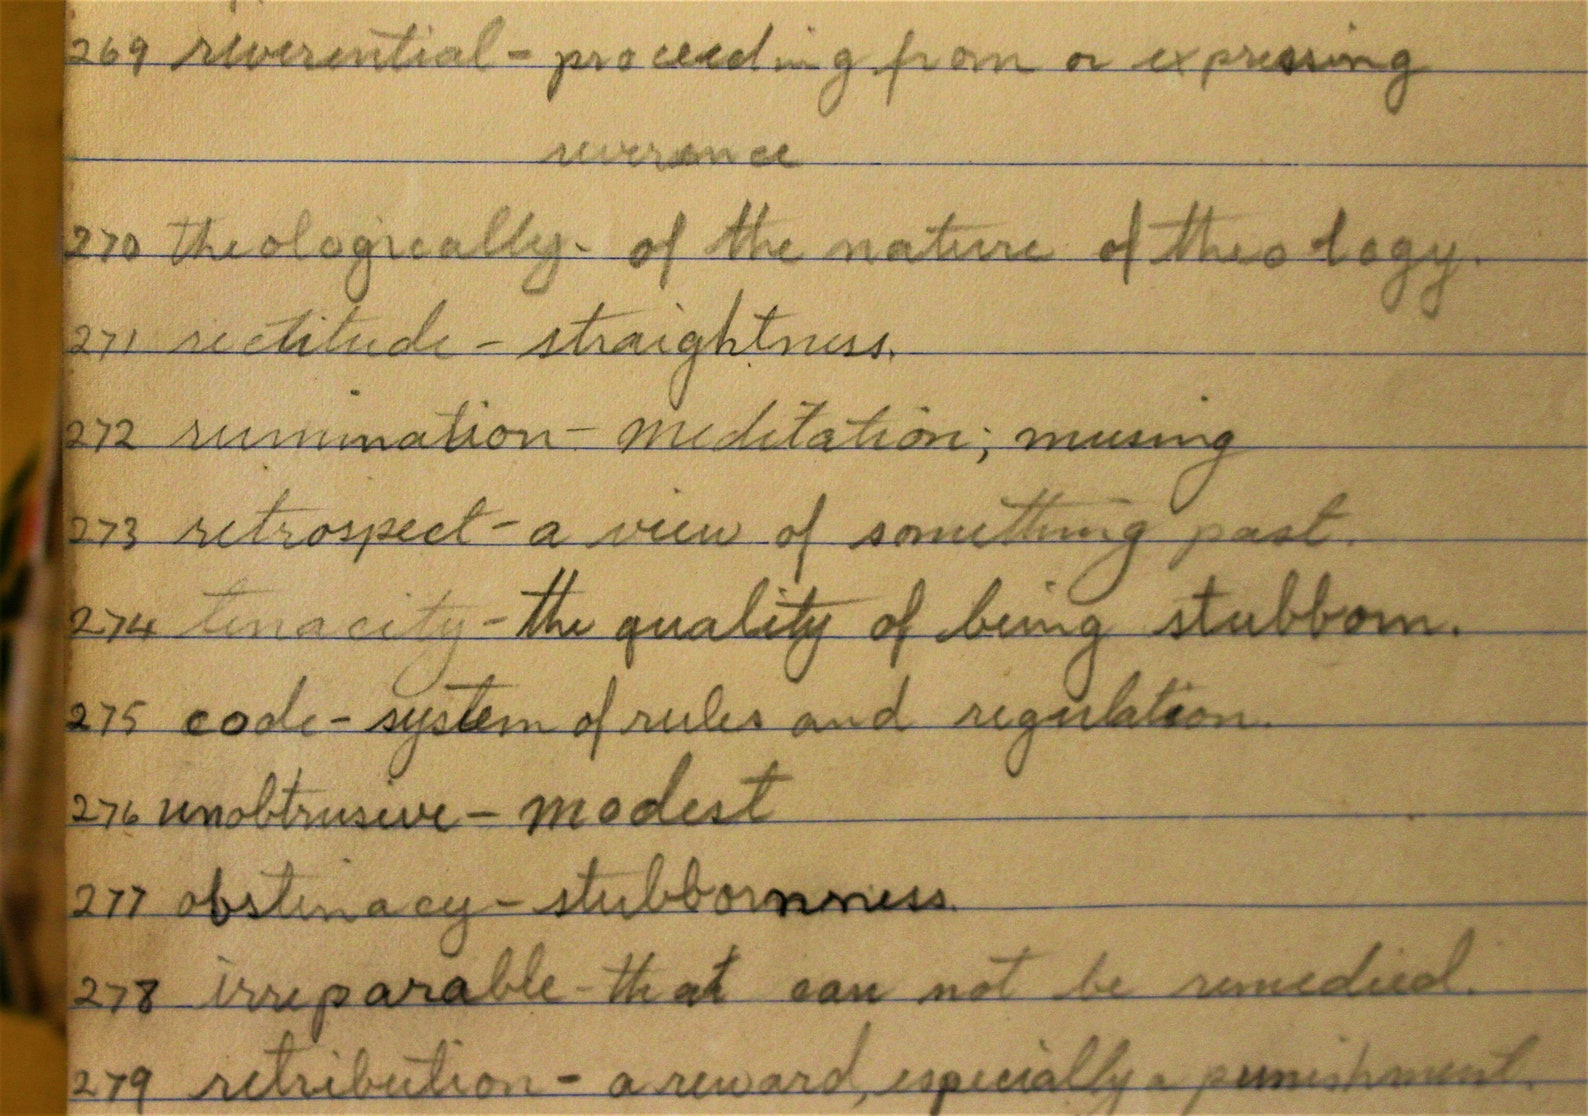 269 reverential - proceeding from or expressing
reverence
270 theologically - of the nature of theology.
271 rectitude - straightness.
272 rumination - meditation; musing
273 retrospect - a view of something past.
274 tenacity - the quality of being stubborn.
275 code - system of rules and regulation.
276 unobtrusive - modest
277 obstinacy - stubbornness.
278 irreparable - that can not be remedied.
279 retribution - a reward, especially a punishment.